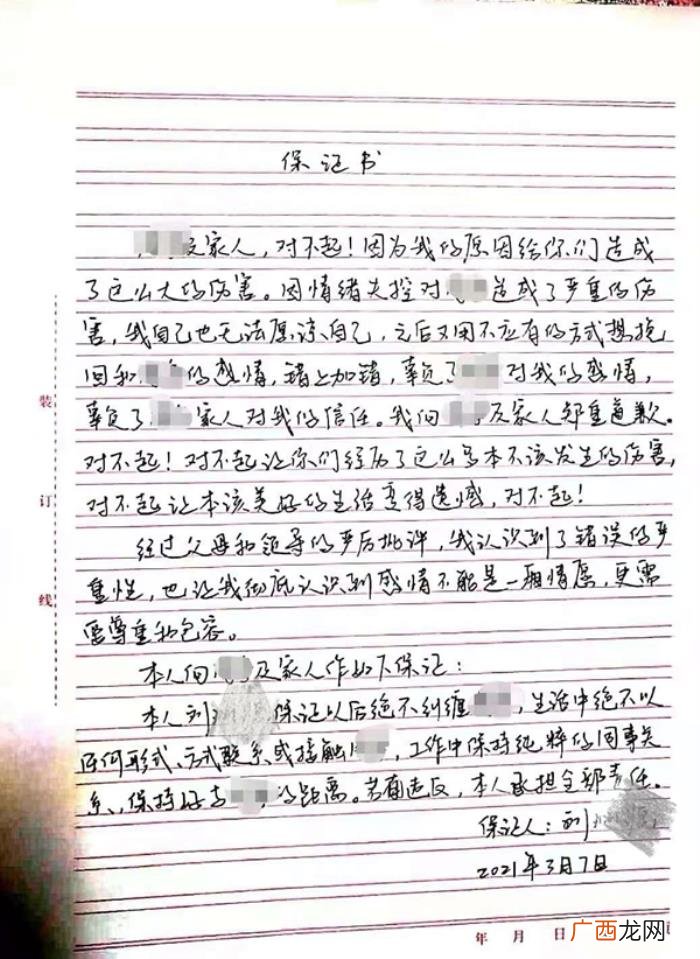 保证书
及家人，对不起！因为我的原因给你们造成
了这么大的伤害。因情绪失控对 造成了严重的伤
害，我自己也无法原谅自己，之后又用不应有的方式想挽
回和 的感情，错上加错，辜负了 对我的感情，
辜负了 家人对我的信任。我向 及家人郑重道歉.
对不起！对不起让你们经历了这么多本不该发生的伤害，
对不起让本该美好的生活变得遗憾，对不起！
经过父母和领导的严厉批评，我认识到了错误的严
重性，也让我彻底认识到感情不能是一厢情愿，更需
要尊重和包容。
本人向 及家人作如下保证：
本人刘 保证以后绝不纠缠 ，生活中绝不以
任何形式、方式联系或接触 ，工作中保持纯粹的同事关
系，保持好与 的距离。若有违反，本人承担全部责任.
保证人：刘
2021年3月7日
装
订
线
年 月 日
广西龙网